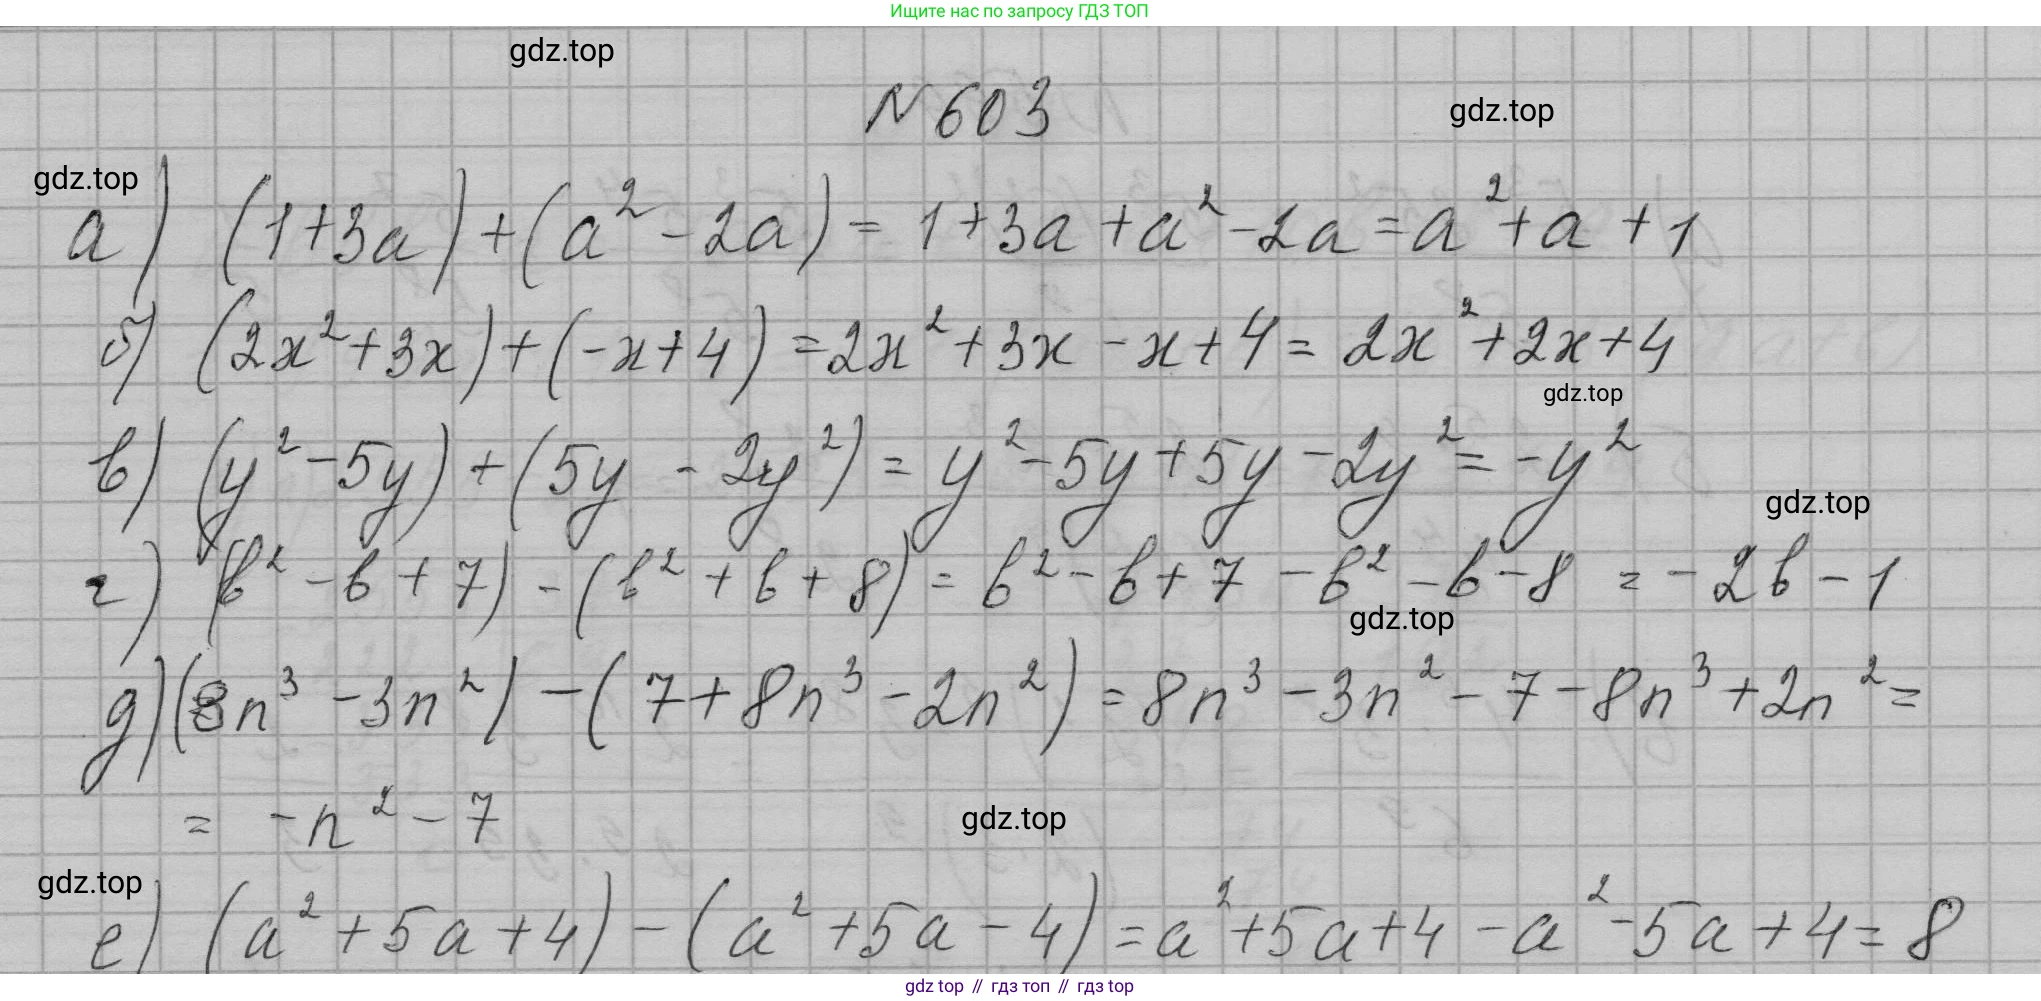 Ищите нас по запросу ГДЗ ТОП
gdz.top
N 603
gdz.top
gdz.top
а) (1+3a)+(a²-2a)=1+3a+a²-2a=a²+a+1
б) (2x²+3x)+(-x+4)=2x²+3x-x+4=2x²+2x+4
gdz.top
в) (y²-5y)+(5y-2y²)=y²-5y+5y-2y²=-y²
gdz.top
г) (b²-b+7)-(b²+b+8)=b²-b+7-b²-b-8=-2b-1
gdz.top
д) (8n³-3n²)-(7+8n³-2n²)=8n³-3n²-7-8n³+2n²=
=-n²-7
gdz.top
gdz.top
е) (a²+5a+4)-(a²+5a-4)=a²+5a+4-a²-5a+4=8
gdz.top // гдз топ // гдз top